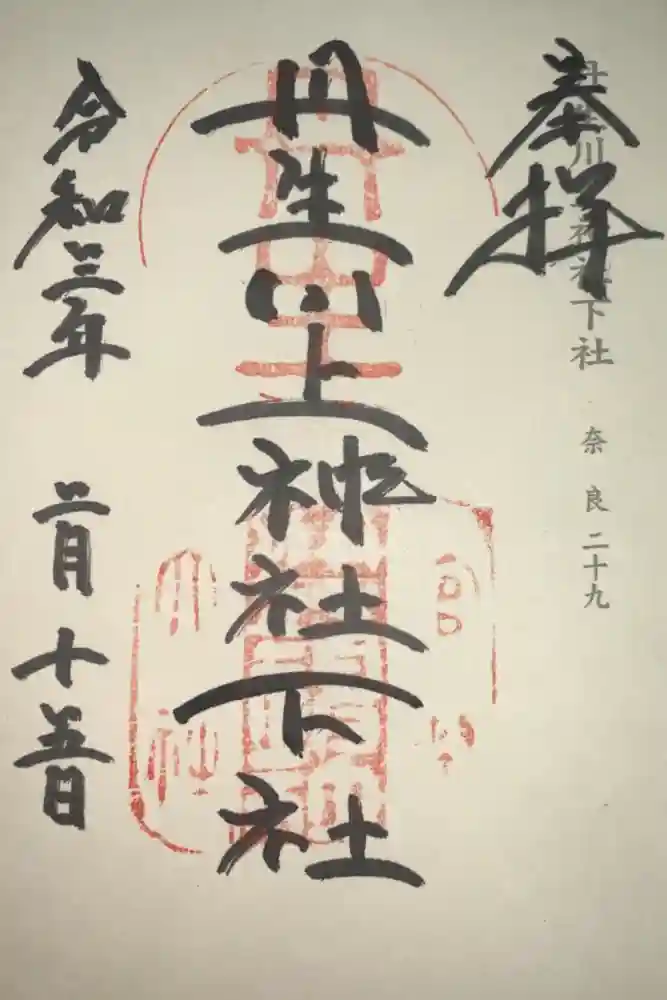 丹生川上神社下社 奈良二十九
奉拝
丹生川上神社下社
令和三年 二月十五日